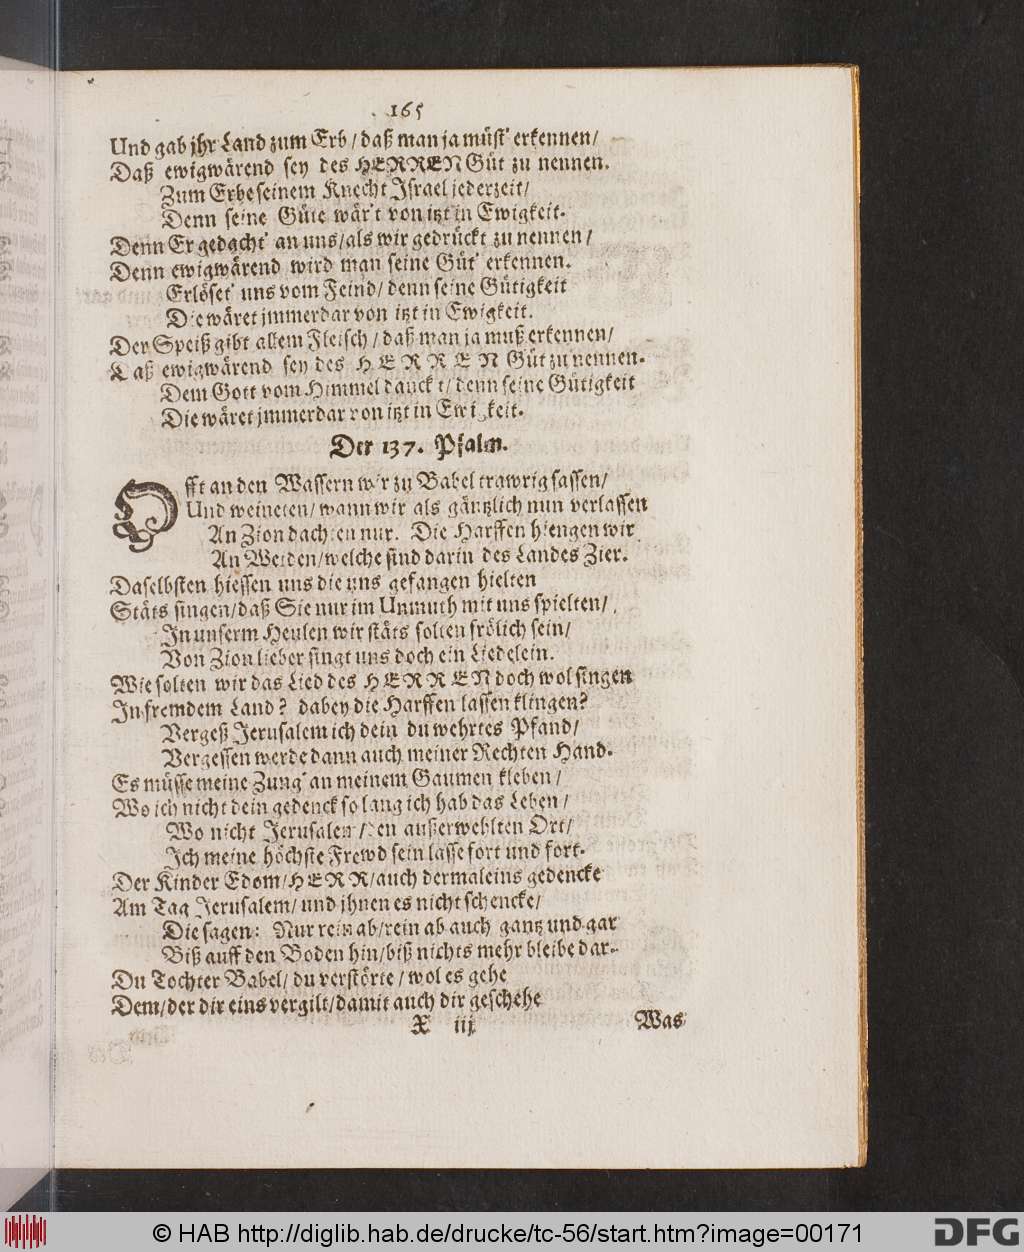 165
Und gab jhr Land zum Erb / daß man ja müst' erkennen /
Daß ewigwärend sey des HERREN Güt zu nennen.
Zum Erbe seinem Knecht Israel jederzeit /
Denn seine Güte wär't von itzt in Ewigkeit.
Denn Er gedacht' an uns / als wir gedrückt zu nennen /
Denn ewigwärend wird man seine Güt' erkennen.
Erlöset' uns vom Feind / denn seine Gütigkeit
Die wäret jmmerdar von itzt in Ewigkeit.
Der Speiß gibt allem Fleisch / daß man ja muß erkennen /
Daß ewigwärend sey des HERREN Güt zu nennen.
Dem Gott vom Himmel danckt / denn seine Gütigkeit
Die wäret jmmerdar von itzt in Ewigkeit.
Der 137. Psalm.
Offt an den Wassern wir zu Babel trawrig sassen /
Und weineten / wann wir als gäntzlich nun verlassen
An Zion dachten nur. Die Harffen hiengen wir
An Weiden / welche sind darin des Landes Zier.
Daselbsten hiessen uns die uns gefangen hielten
Stäts singen / daß Sie nur im Unmuth mit uns spielten /
In unserm Heulen wir stäts solten frölich sein /
Von Zion lieber singt uns doch ein Liedelein.
Wie solten wir das Lied des HERREN doch wol singen
In fremdem Land? dabey die Harffen lassen klingen?
Vergeß Jerusalem ich dein du wehrtes Pfand /
Vergessen werde dann auch meiner Rechten Hand.
Es müsse meine Zung' an meinem Gaumen kleben /
Wo ich nicht dein gedenck so lang ich hab das Leben /
Wo nicht Jerusalem / den außerwehlten Ort /
Ich meine höchste Frewd sein lasse fort und fort.
Der Kinder Edom / HERR / auch dermaleins gedencke
Am Tag Jerusalem / und jhnen es nicht schencke /
Die sagen: Nur rein ab / rein ab auch gantz und gar
Biß auff den Boden hin / biß nichts mehr bleibe dar.
Du Tochter Babel / du verstörte / wol es gehe
Dem / der dir eins vergilt / damit auch dir geschehe
X iij
Was
© HAB http://diglib.hab.de/drucke/tc-56/start.htm?image=00171
DFG